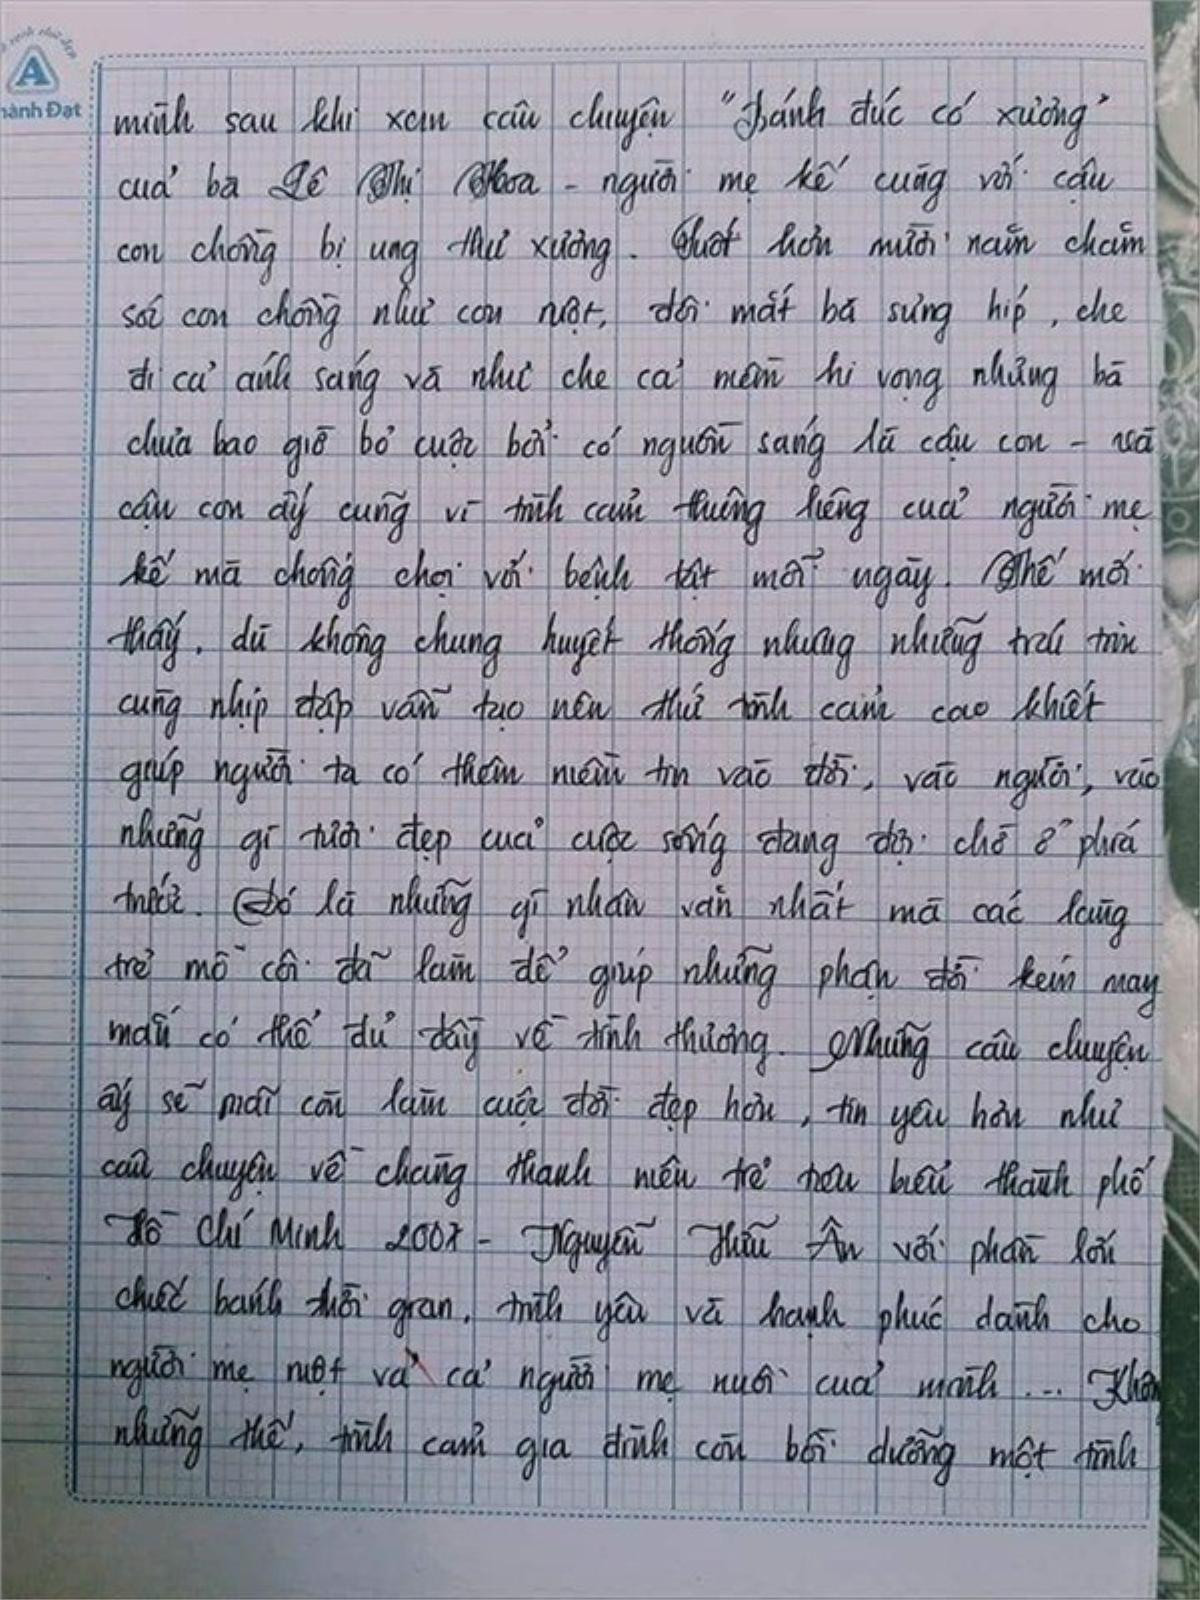 A
hành Đạt
mình sau khi xem câu chuyện "Bánh đúc có xương"
của bà Lê Thị Hoa - người mẹ kế cùng với cậu
con chồng bị ung thư xương. Suốt hơn mười năm chăm
sóc con chồng như con ruột, đôi mắt bà sưng híp, che
đi cả ánh sáng và như che cả niềm hi vọng nhưng bà
chưa bao giờ bỏ cuộc bởi có nguồn sáng là cậu con - và
cậu con ấy cũng vì tình cảm thiêng liêng của người mẹ
kế mà chống chọi với bệnh tật mỗi ngày. Thế mới
thấy, dù không chung huyết thống nhưng những trái tim
cùng nhịp đập vẫn tạo nên thứ tình cảm cao khiết
giúp người ta có thêm niềm tin vào đời, vào người, vào
những gì tươi đẹp của cuộc sống đang đợi chờ ở phía
trước. Đó là những gì nhân văn nhất mà các làng
trẻ mồ côi đã làm để giúp những phận đời kém may
mắn có thể đủ đầy về tình thương. Những câu chuyện
ấy sẽ mãi còn làm cuộc đời đẹp hơn, tin yêu hơn như
câu chuyện về chàng thanh niên trẻ tiêu biểu thành phố
Hồ Chí Minh 2007 - Nguyễn Hữu Ân với phần lớn
chiếc bánh thời gian, tình yêu và hạnh phúc dành cho
người mẹ ruột và cả người mẹ nuôi của mình ... Khôn
những thế, tình cảm gia đình còn bồi dưỡng một tình